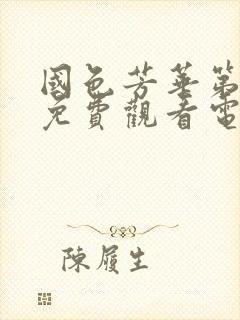 國色芳華第
免費觀看電
陳履生